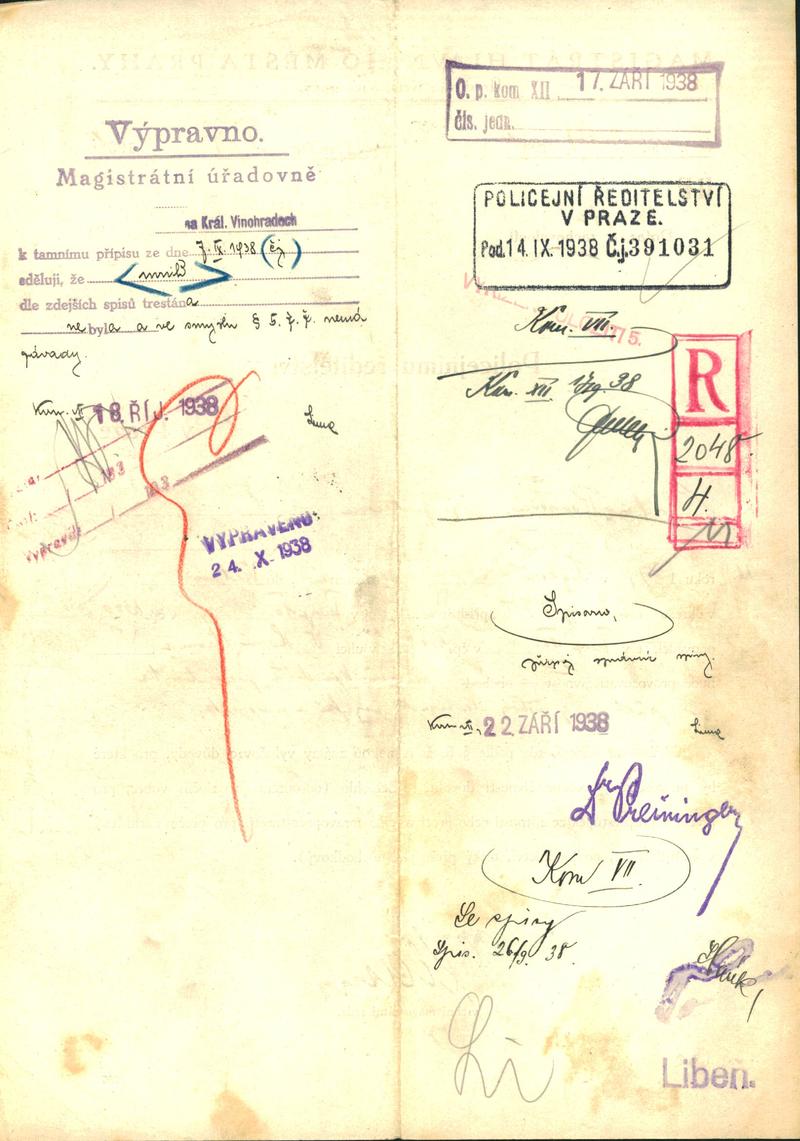 Výpravno.
Magistrátní úřadovně
na Král. Vinohradech
k tamnímu přípisu ze dne 7. IX. 1938 (čj )
sděluji, že
dle zdejších spisů trestána
nebyla a ve smyslu § 5. ř. ř. nemá
závady.
Kom. VII 18. ŘÍJ. 1938
193
193
Vypravil:
VYPRAVENO
24. X. 1938
O. p. kom XII 17. ZÁŘÍ 1938
čís. jedn.
POLICEJNÍ ŘEDITELSTVÍ
V PRAZE.
Pod. 14. IX. 1938 Č.j. 391031
Kom. VII.
Kom. XII. 17/9. 38
R
2048
4.
Spisovno,
správní spisy.
Kom. VII. 22. ZÁŘÍ 1938
Dr. Preininger
Kom VII.
Se spisy
Spis. 26/9. 38.
Li
Libeň.